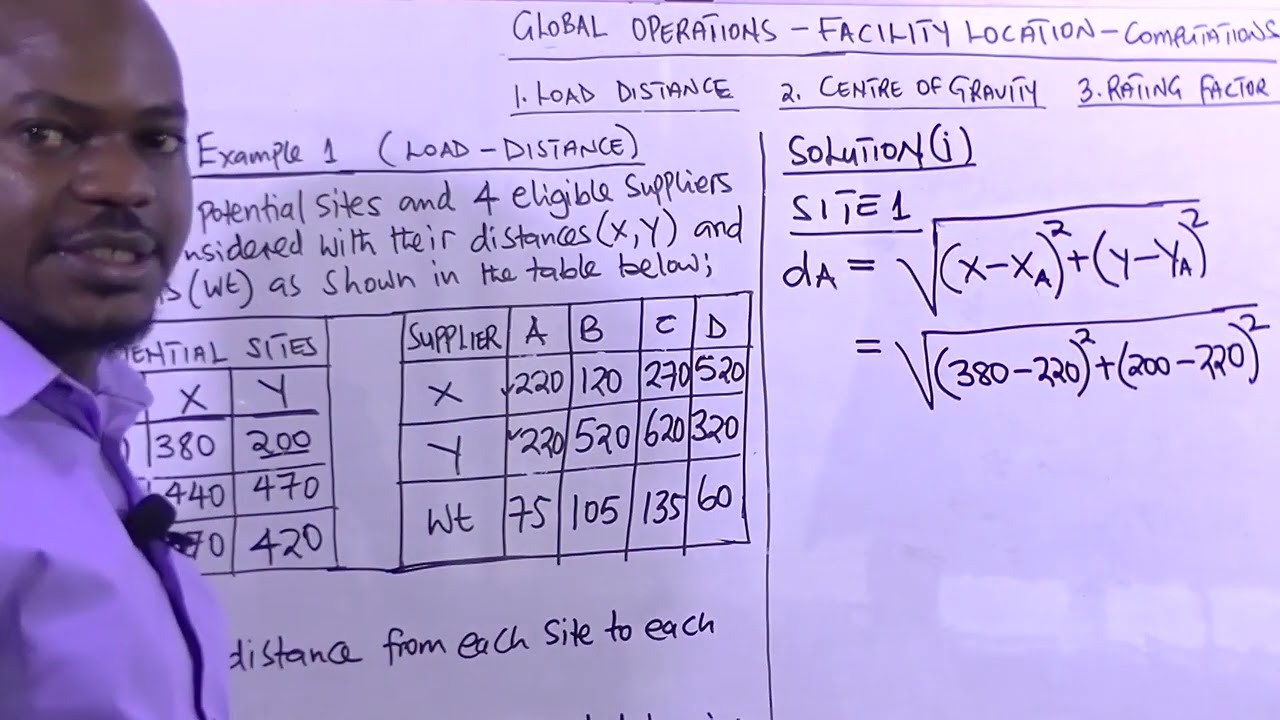 GLOBAL OPERATIONS - FACILITY LOCATION - COMPUTATIONS
1. LOAD DISTANCE 2. CENTRE OF GRAVITY 3. RATING FACTOR
Example 1 (LOAD-DISTANCE)
potential sites and 4 eligible suppliers
nsidered with their distances (X,Y) and
(Wt) as shown in the table below;
ENTIAL SITES
X Y
380 200
440 470
70 420
SUPPLIER A B C D
X 220 120 270 520
Y 220 520 620 320
Wt 75 105 135 60
distance from each site to each
SOLUTION (i)
SITE 1
dA = √(X-XA)²+(Y-YA)²
= √(380-220)²+(200-220)²